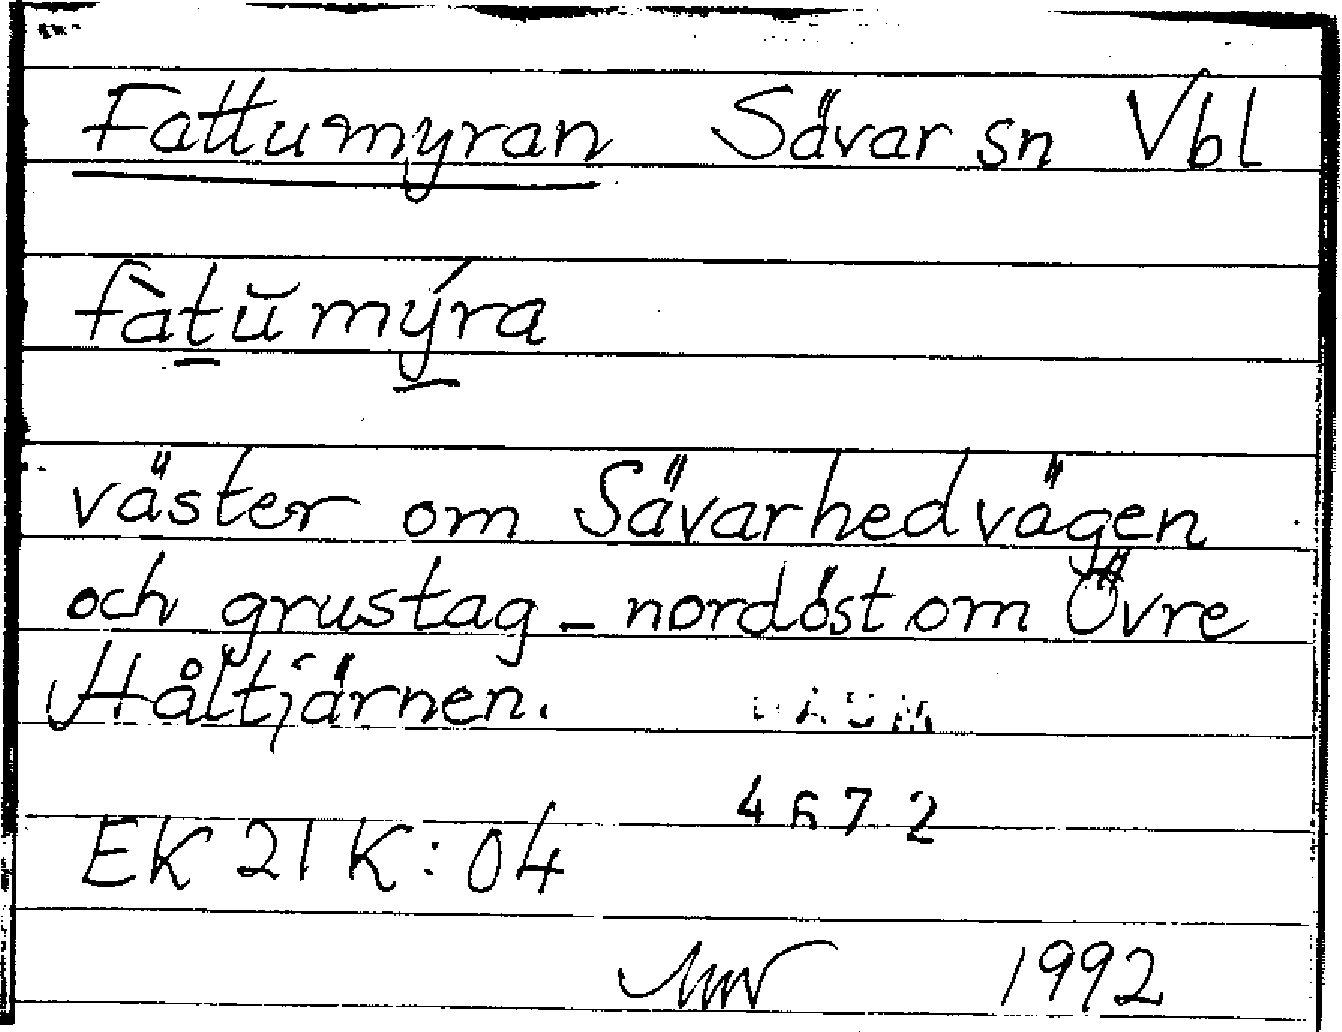 Fattumyran Sävar sn Vbl
fàtŭmýra
väster om Sävarhedvägen
och grustag - nordöst om Övre
Håltjärnen.
DAUM
4672
EK 21 K: 04
1992